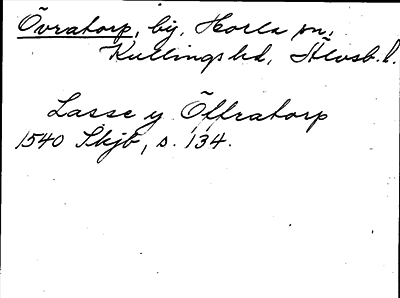 Övratorp, by, Horla sn,
Kullings hd, Älvsb. l.
Lasse y Öffratorp
1540 Skjb, s. 134.